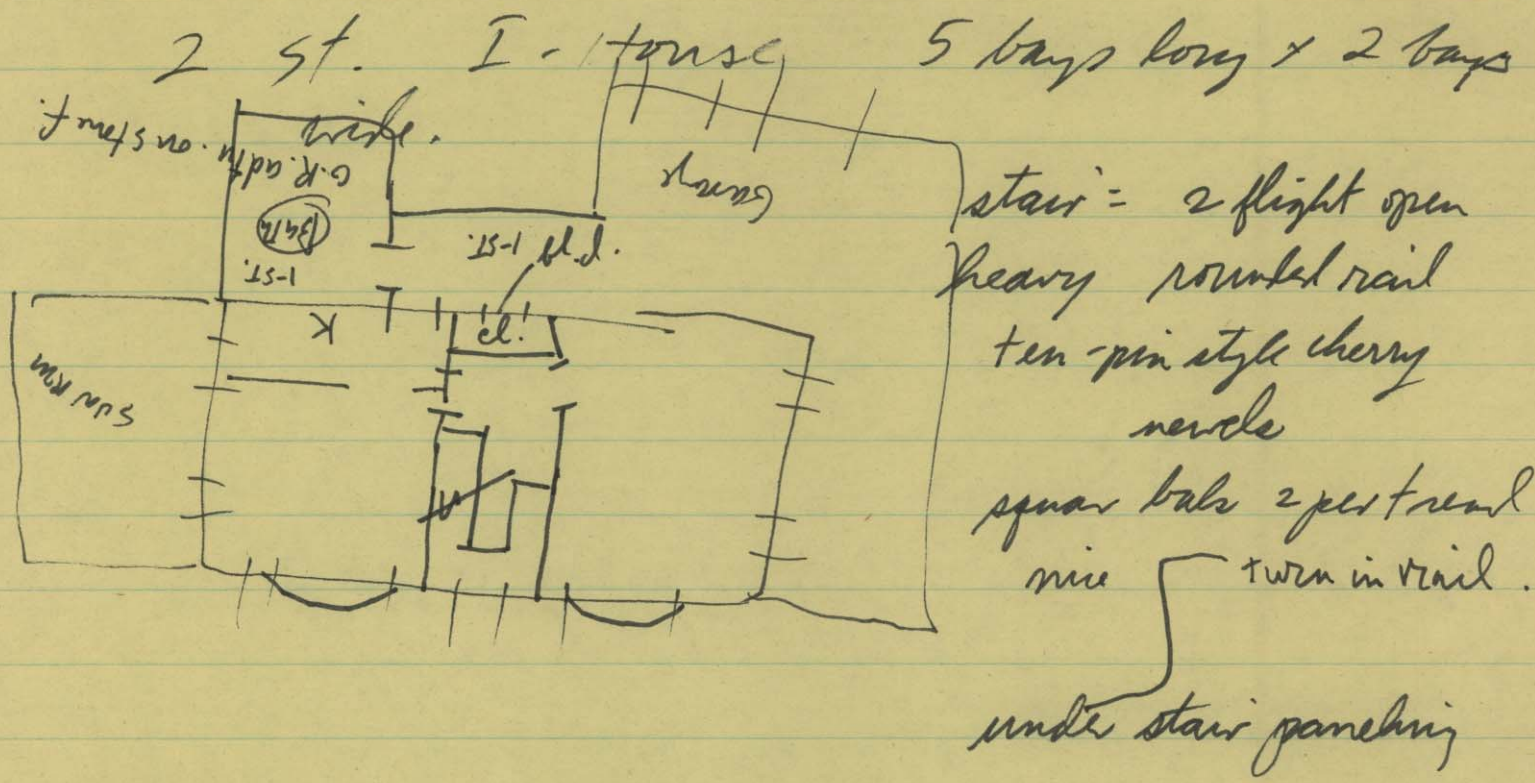 2 st. I-House, 5 bays long x 2 bays
wide.
O.R. adtn. on stone f.
Bath
1-ST.
1-ST.
Garage
K
cl.
SUN RM
stair = 2 flight open
heavy rounded rail
ten-pin style cherry
newels
square bals 2 per tread
nice turn in rail.
under stair paneling